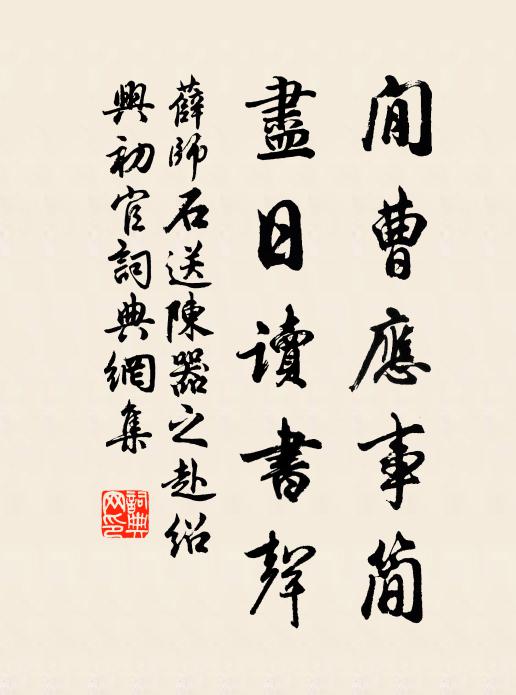 閒曹應事簡
盡日讀書聲
薛師石送陳器之赴紹
興初官詞典網集
詞典網印